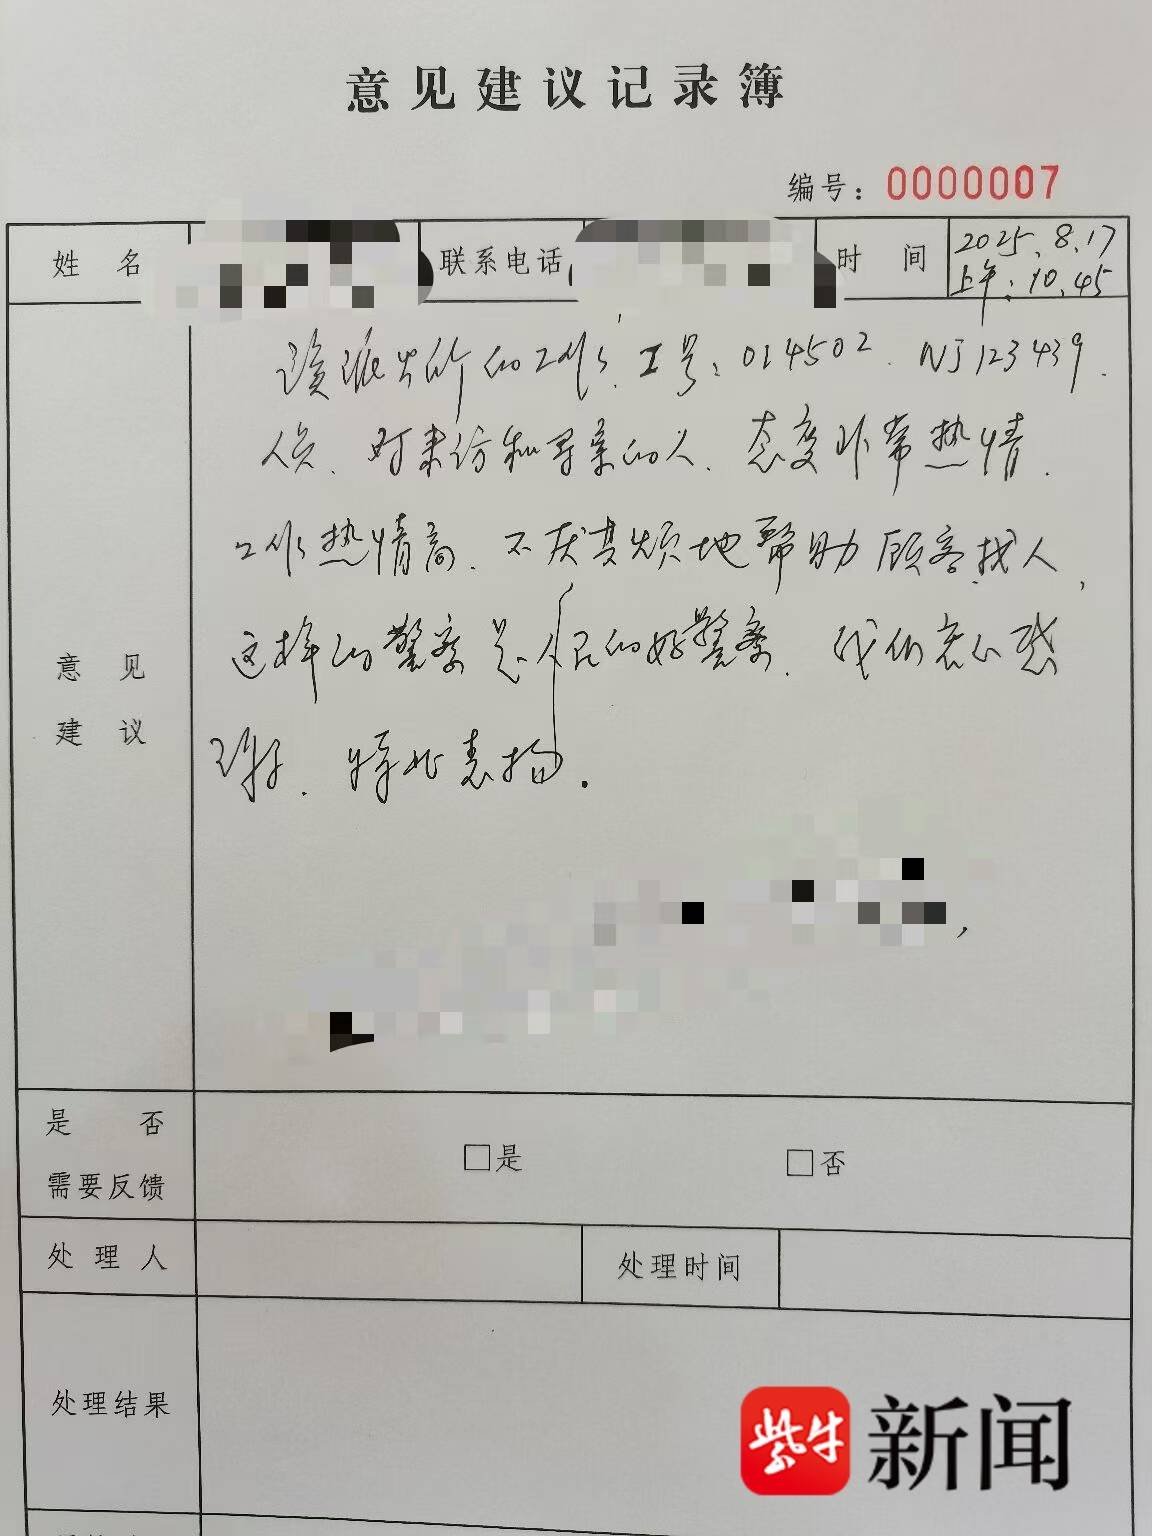 意见建议记录簿
编号：0000007
姓 名
联系电话
时 间
2025.8.17
上午：10.45
该派出所的工作，工号：014502．NJ123439．
人员．对来访和寻亲的人．态度非常热情．
工作热情高．不厌其烦地帮助顾客找人，
这样的警察是人民的好警察．我们衷心感
谢．特此表扬．
意 见
建 议
是 否
需要反馈
□是
□否
处 理 人
处理时间
处理结果
紫牛
新闻